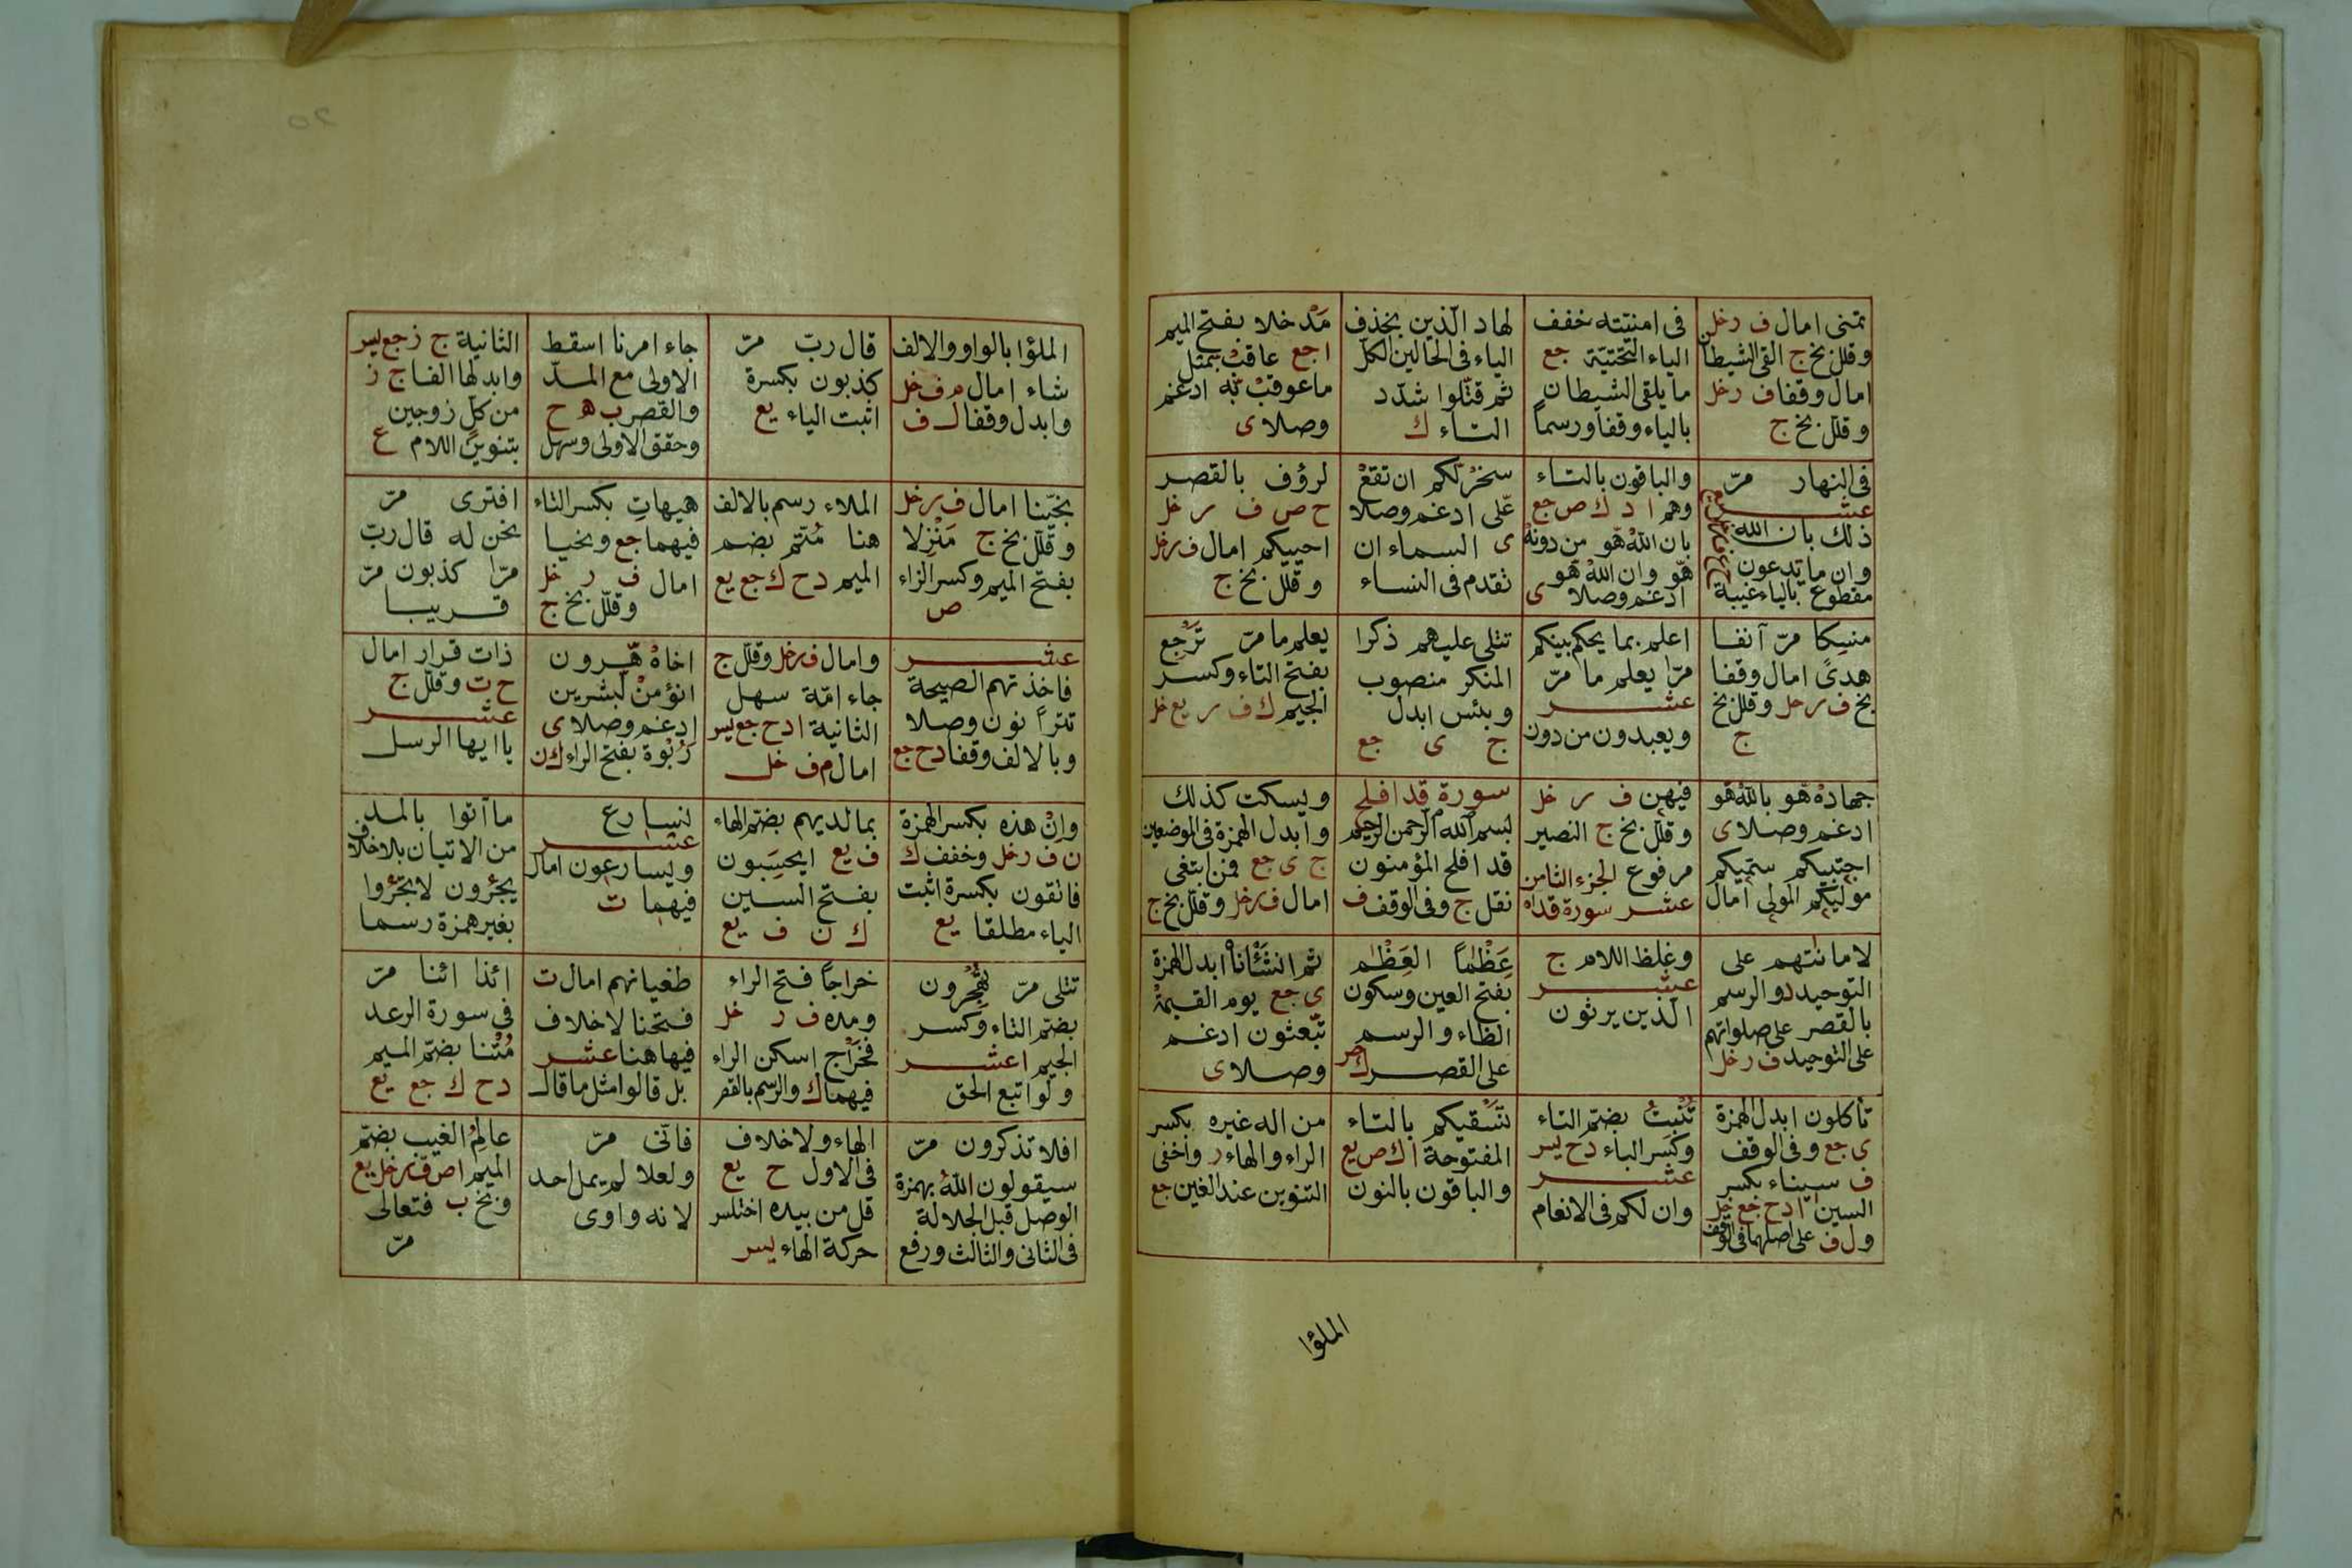 تمنى امال ف ر خل
وقلل بخ ج القى الشيطان
امال وقفا ف ر خل
وقلل بخ ج
فى امنيته خفف
الياء التحتيّة جع
ما يلقى الشيطان
بالياء وقفا ورسماً
لهاد الّذين بحذف
الياء فى الحالين لكلّ
ثم قتّلوا شدّد
التاء ك
مَدخلا بفتح الميم
ا جع عاقبْ بمثل
ما عوقبْ بّه ادغم
وصلا ى
فى النهار مرّ
عشر
ذلك بان الله
وان ما يدعون
مقطوع بالياء غيبة
والباقون بالتاء
وهم ا د ك ص جع
بان الله هّو من دونه
هّو وان الله هّو
ادغم وصلا ى
سخرْ لّكم ان تقعْ
عّلى ادغم وصلا
ى السماء ان
تقدم فى النساء
لرؤف بالقصر
ح ص ف ر خل
احييكم امال ف ر خل
وقلل بخ ج
منسِكا مرّ آنفا
هدىً امال وقفا
بخ ف ر خل وقلل بخ
ج
اعلم بما يحكم بينكم
مرّا يعلم ما مرّ
عشر
ويعبدون من دون
تتلى عليهم ذكرا
المنكر منصوب
وبئس ابدل
ج ى جع
يعلم ما مرّ تَرجِع
بفتح التاء وكسر
الجيم ك ف ر يع خل
جهادهْ هّو بالله هّو
ادغم وصلا ى
اجتبيكم سمّيكم
موليكم المولى امال
فيهن ف ر خل
وقلل بخ ج النصير
مرفوع الجزء الثامن
عشر سورة قداه
سورة قد افلح
بسم الله الرحمن الرحيم
قد افلح المؤمنون
نقل ج وفى الوقف ف
ويسكت كذلك
وابدل الهمزة فى الموضعين
ج ى جع فمن ابتغى
امال ف ر خل وقلل بخ ج
لامانتهم على
التوحيد د والرسم
بالقصر على صلواتهم
على التوحيد ف ر خل
وغلظ اللام ج
عشر
الّذين يرثون
عَظْماً العَظْم
بفتح العين وسكون
الظاء والرسم
على القصر ك ص
ثم انشأناْ ابدل الهمزة
ى جع يوم القيمةْ
تّبعثون ادغم
وصلا ى
تأكلون ابدل الهمزة
ى جع وفى الوقف
ف سيناء بكسر
السين ا د ح جع خل
ول ف على اصلهما فى الوقف
تُنْبِتُ بضم التاء
وكسر الباء د ح يس
عشر
وان لكم فى الانعام
تَسْقيكم بالتاء
المفتوحة ا ك ص يع
والباقون بالنون
من اله غيره بكسر
الراء والهاء ر واخفى
التنوين عند الغين جع
الملؤا
الملؤا بالواو والالف
شاء امال م ف خل
وابدل وقفا ل ف
قال ربّ مرّ
كذبون بكسرة
اثبت الياء يع
جاء امرنا اسقط
الاولى مع المدّ
والقصر ب ه ح
وحقق الاولى وسهل
الثانية ج ز جع يس
وابدلها الفا ج ز
من كلِّ زوجين
بتنوين اللام ع
نجّينا امال ف ر خل
وقلّل بخ ج مَنْزِلا
بفتح الميم وكسر الزاء
ص
الملاء رسم بالالف
هنا مُتّم بضم
الميم د ح ك جع يع
هيهاتِ بكسر التاء
فيهما جع ونحيا
امال ف ر خل
وقلّل بخ ج
افترى مرّ
نحن له قال ربّ
مرّا كذبون مرّ
قريبا
عشر
فاخذتهم الصيحة
تتراً نون وصلا
وبالالف وقفا د ح جع
وامال ف ر خل وقلّل ج
جاء امّة سهل
الثانية ا د ح جع يس
امال م ف خل
اخاهْ هّرون
انؤمنْ لّبشرين
ادغم وصلا ى
رَبْوة بفتح الراء ك ن
ذات قرار امال
ح ت وقلّل ج
عشر
يا ايها الرسل
وإنّ هذه بكسر الهمزة
ن ف ر خل وخفف ك
فاتقون بكسرة اثبت
الياء مطلقا يع
بما لديهم بضم الهاء
ف يع ايحسَبون
بفتح السين
ك ن ف يع
نسارع
عشر
ويسارعون امال
فيهما ت
ما آتوا بالمد
من الاتيان بلا خلاف
يجئرون لا تجئروا
بغير همزة رسما
تتلى مرّ تُهْجِرون
بضم التاء وكسر
الجيم ا عشر
ولو اتبع الحق
خراجاً فتح الراء
ومده ف ر خل
فخَرْج اسكن الراء
فيهما ك والرسم بالقصر
طغيانهم امال ت
فتحنا لا خلاف
فيها هنا عشر
بل قالوا مثل ما قال
ائذا ائنا مرّ
فى سورة الرعد
مُتنا بضم الميم
د ح ك جع يع
افلا تذكرون مرّ
سيقولون اللهُ بهمزة
الوصل قبل الجلالة
فى الثانى والثالث ورفع
الهاء ولا خلاف
فى الاول ح يع
قل من بيده اختلس
حركة الهاء يس
فانّى مرّ
ولعلا لم يمل احد
لانه واوى
عالِمُ الغيب بضم
الميم ا ص ف ر خل يع
وبخ ب فتعالى
مرّ